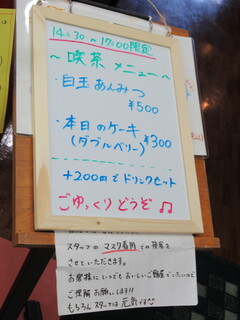 14:30〜17:00限定
〜喫茶メニュー〜
・白玉あんみつ
¥500
・本日のケーキ
(ダブルベリー) ¥300
+200円でドリンクセット
ごゆっくりどうぞ♫
スタッフのマスク着用での接客を
させていただきます。
お客様にいつでもおいしいご飯
ご理解お願いします!!
もちろんスタッフは元気です